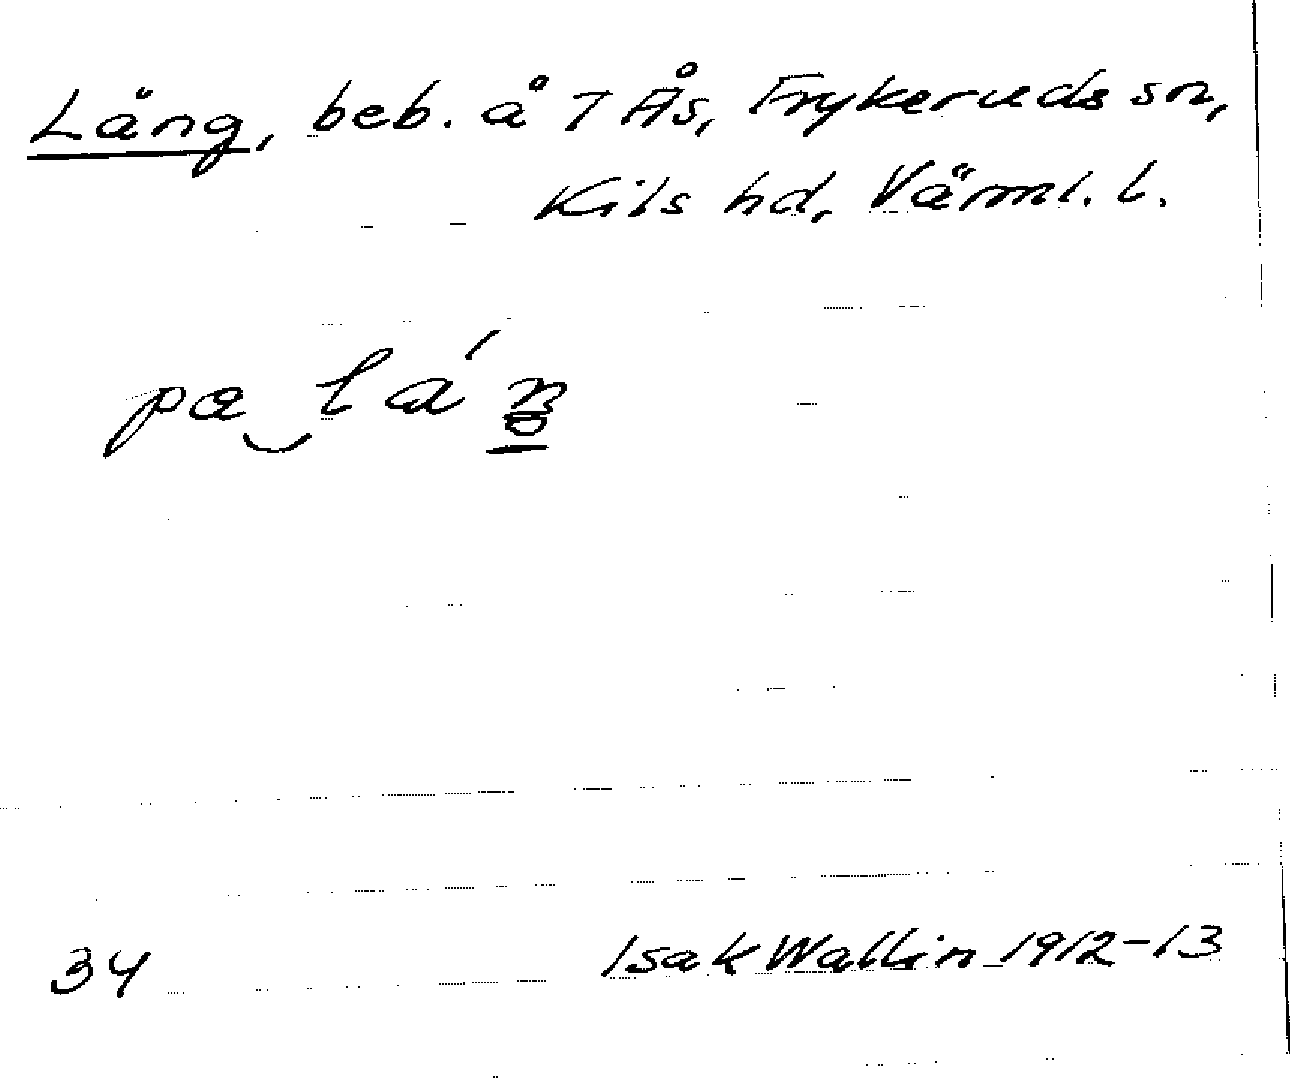 Läng, beb. å 7 Ås, Frykeruds sn,
Kils hd, Värml. l.
34
Isak Wallin 1912-13